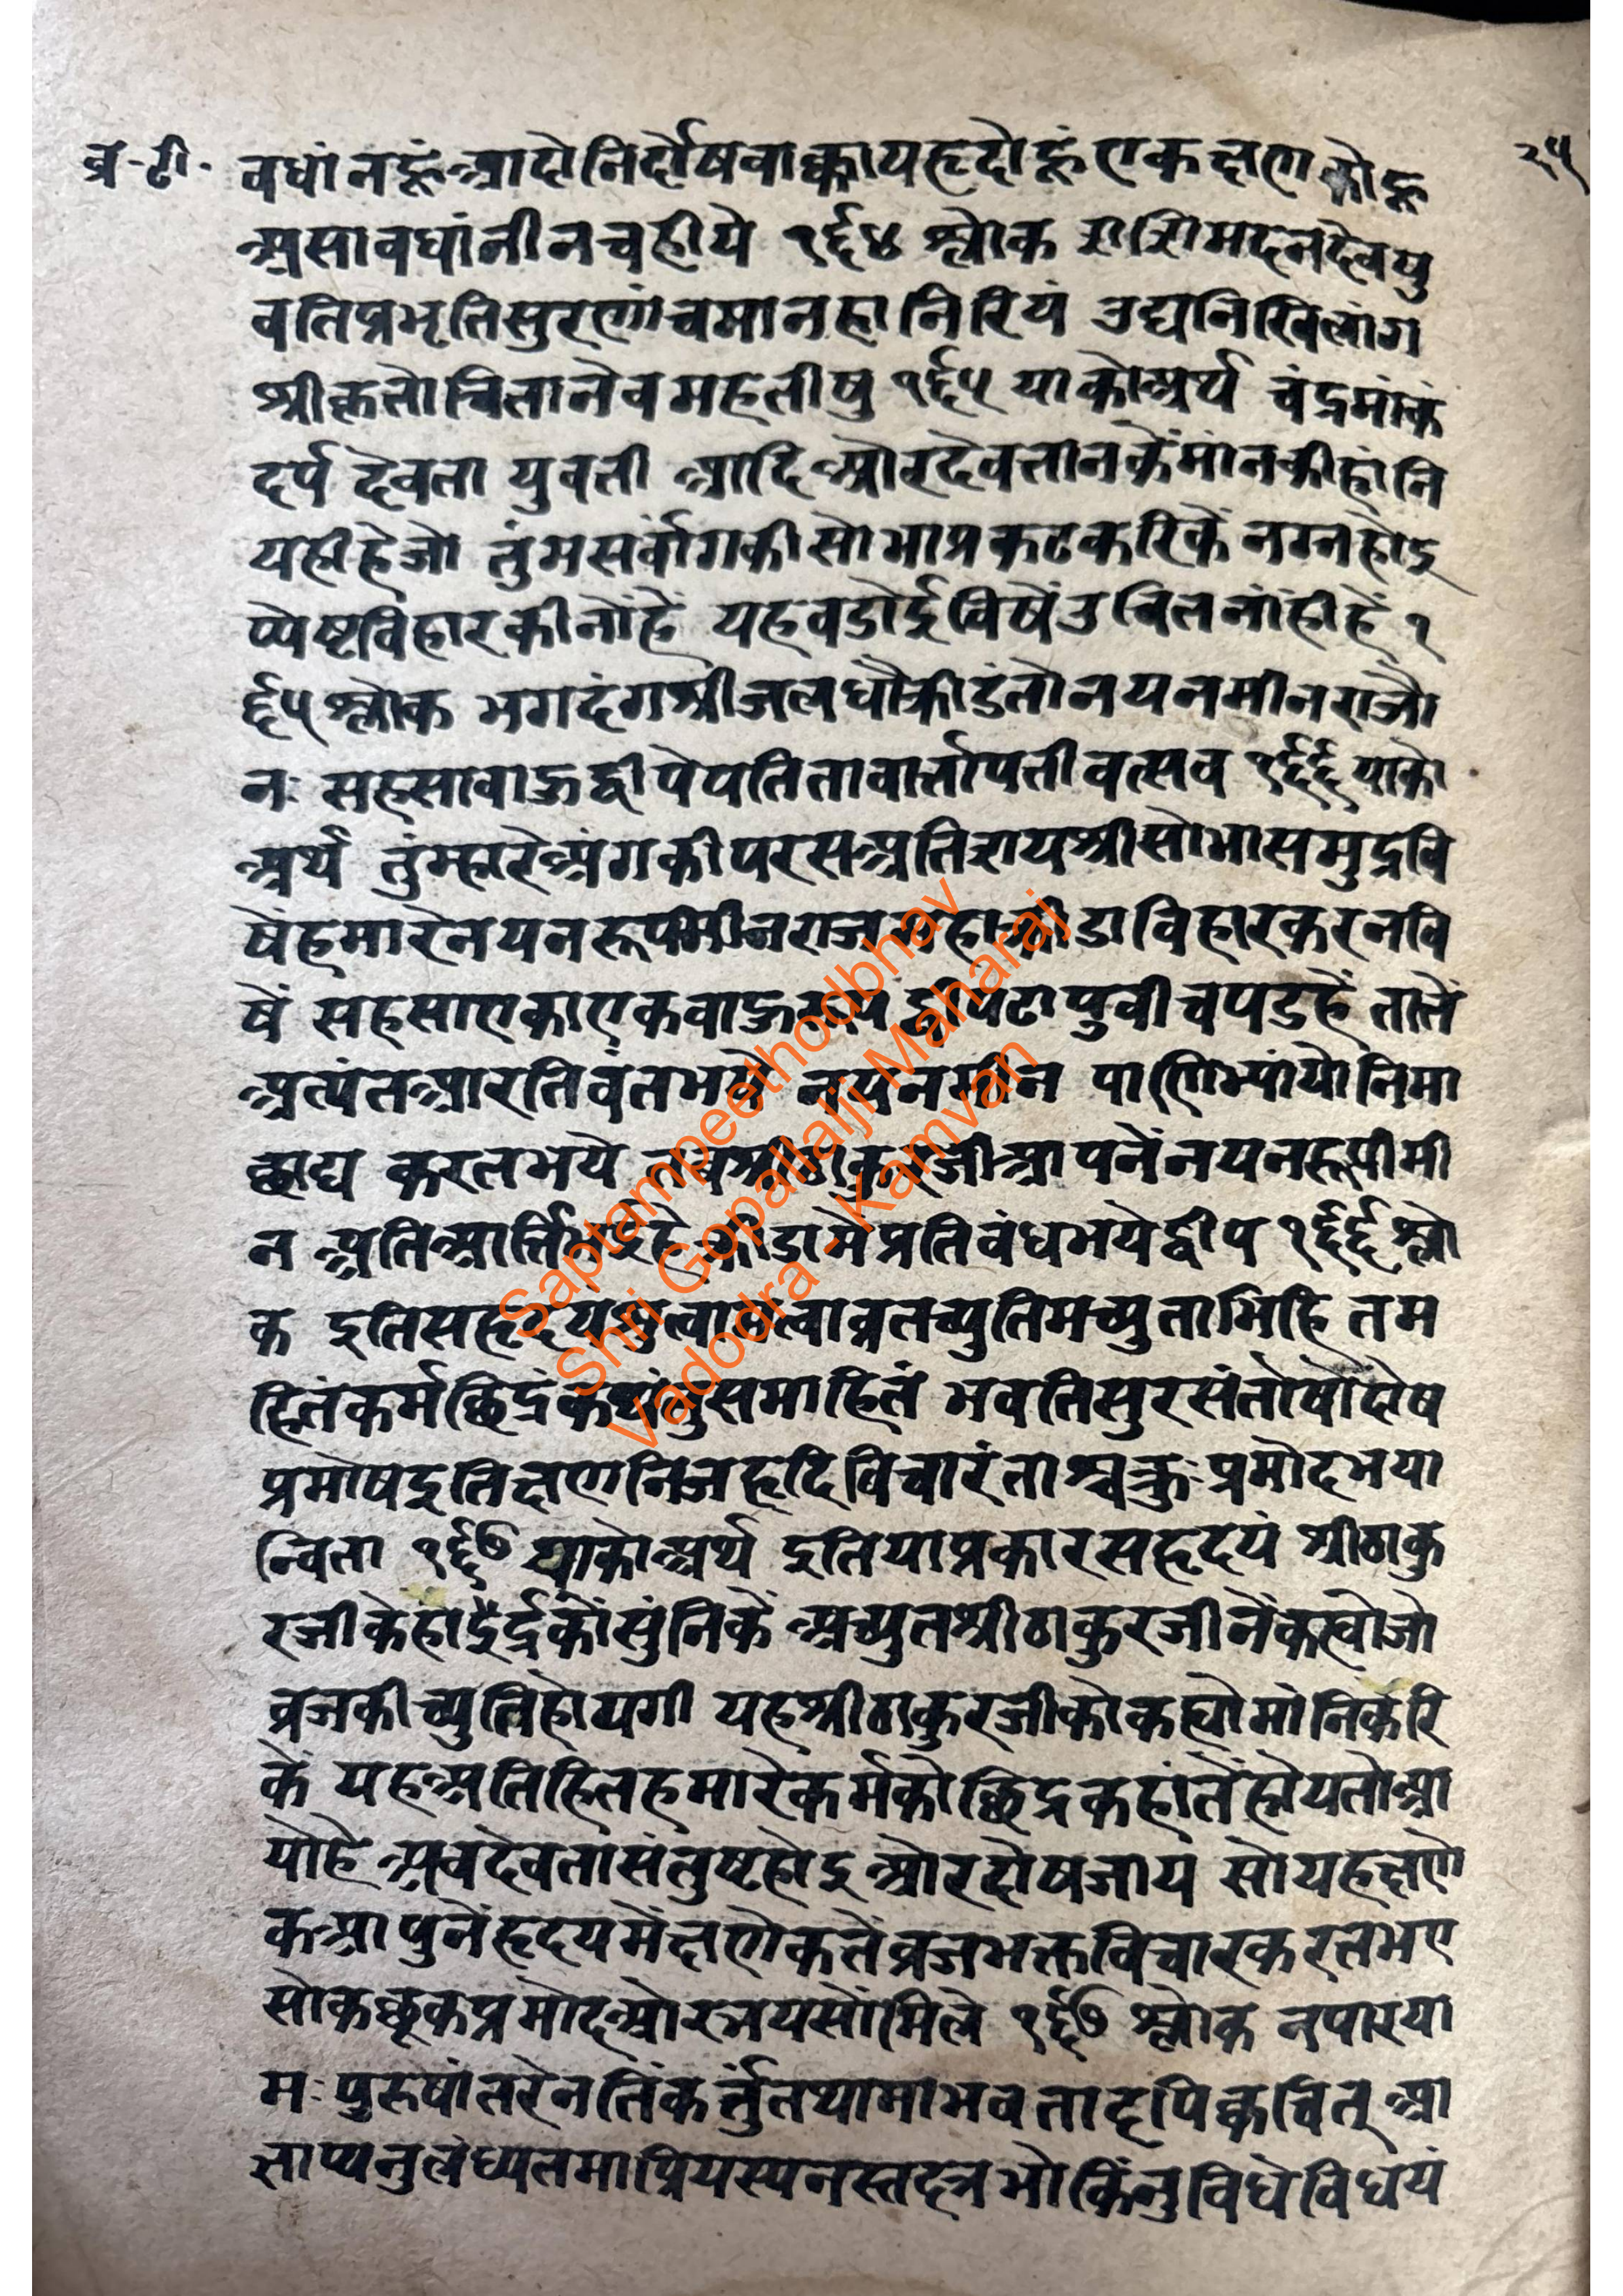 व्र-टी.
२५
वधांनहूंआदोनिर्दोषवाक्कायहृदोहूंएकक्षण कोहू
असावधांनीनचहीये १६४ श्लोक राशिमदनदेवयु
वतिप्रभृतिसुराणांचमानहानिरियं उद्यनिखिलांग
श्रीकृतोचितानेवमहतीषु १६५ याकोअर्थ चंद्रमांकं
दर्प देवता युवती आदिऔरदेवतानकेंमांनकीहांनि
यहीहेजो तुंमसर्वांगकीसोभाप्रकटकरिकें नग्नहोइ
प्येष्टविहारकीनोंहें यहवडोईविषेंउचितनांहीहें १
६५ श्लोक भगदंगश्रीजलधौक्रीडंतोनयनमीनराजौ
नः सहसावाऊद्वीपेपतितावार्त्तापतीवत्सव १६६ याको
अर्थ तुंम्हारेअंगकीपरसअतिशयश्रीसोभासमुद्रवि
षेंहमारेनयनरूपीमीनराजमहाक्रीडाविहारकरनवि
षें सहसाएकाएकवाऊरूप द्वीपटापुवीचपडेहें तातें
अत्यंतआरतिवंतभये नयनमीन पाणिभ्यांयोनिमा
छाद्य करतभये तवश्रीठाकुरजीआपनेंनयनरूपीमी
न अतिआर्त्तिभईहे क्रीडामेप्रतिवंधभयेद्वीप १६६ श्लो
क इतिसहृदयश्रुत्वामत्वाव्रतच्युतिमच्युताभिहि तम
हितंकर्मछिद्रंकथंनुसमाहितं भवतिसुरसंतोषोदोष
प्रमोषइतिक्षणनिजहृदिविचारंताश्चक्रुः प्रमोदभया
न्विता १६७ याकोअर्थ इतियाप्रकारसहृदयं श्रीठाकु
रजीकेहार्दईकोंसुंनिकें अच्युतश्रीठाकुरजीनेंकह्योजो
व्रजकीच्युतिहोयगी यहश्रीठाकुरजीकोकह्योमांनिकरि
कें यहअतिहितहमारेकर्मकोछिद्रकहांतेंहोयतोआ
योहे अवदेवतासंतुष्टहोइ औरदोषजाय सोयहक्षणे
कआपुनेंहृदयमेंक्षणेकतेंव्रजभक्तविचारकरतभए
सोकछूकप्रमोदओरभयसोंमिले १६७ श्लोक नपारया
मः पुरुषांतरेनतिंकर्तुंतथामाभवतादृपिक्वचित् आ
ज्ञाप्यनुलंघ्यतमाप्रियस्यनस्तदत्रभोकिंनुविधेविधेयं